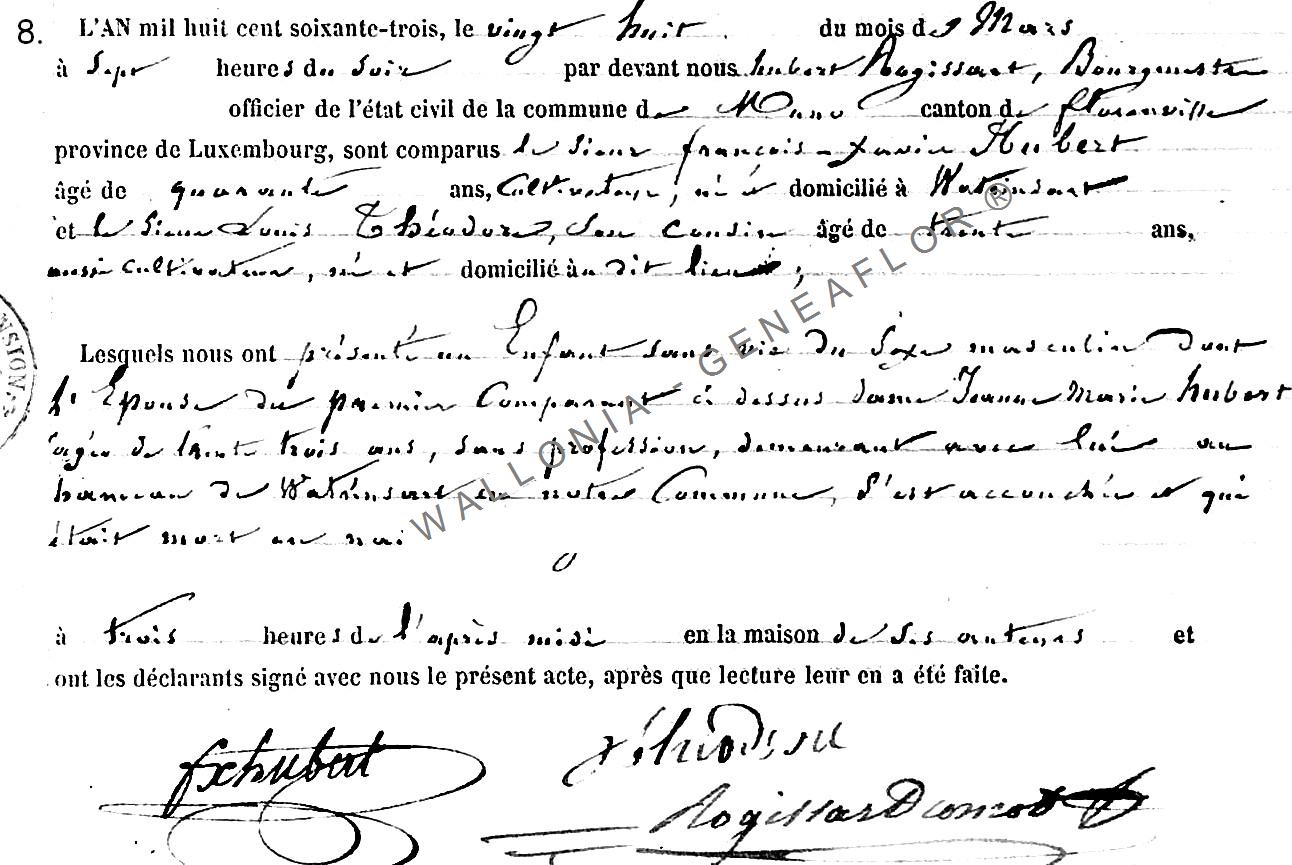 8. L'AN mil huit cent soixante-trois, le vingt huit du mois de Mars
à Sept heures du Soir par devant nous hubert Rogissart, Bourgmestre
officier de l'état civil de la commune de Muno canton de florenville
province de Luxembourg, sont comparus le Sieur françois-xavier Hubert
âgé de quarante ans, Cultivateur, né et domicilié à Watrinsart
et le Sieur Louis Théodore, Son Cousin âgé de trente ans,
aussi Cultivateur, né et domicilié au dit lieu ;
Lesquels nous ont présenté un Enfant sans vie du Sexe masculin Dont
l'Epouse du premier Comparant ci dessus dame Jeanne Marie hubert
agée de trente trois ans, sans profession, demeurant avec lui au
hameau de Watrinsart en notre Commune, S'est accouchée et qui
était mort en nai
à trois heures de l'après midi en la maison de Ses auteurs et
ont les déclarants signé avec nous le présent acte, après que lecture leur en a été faite.
fxhubert
Rogissart
NSION.S
WALLONIA - GENEAFLOR ®